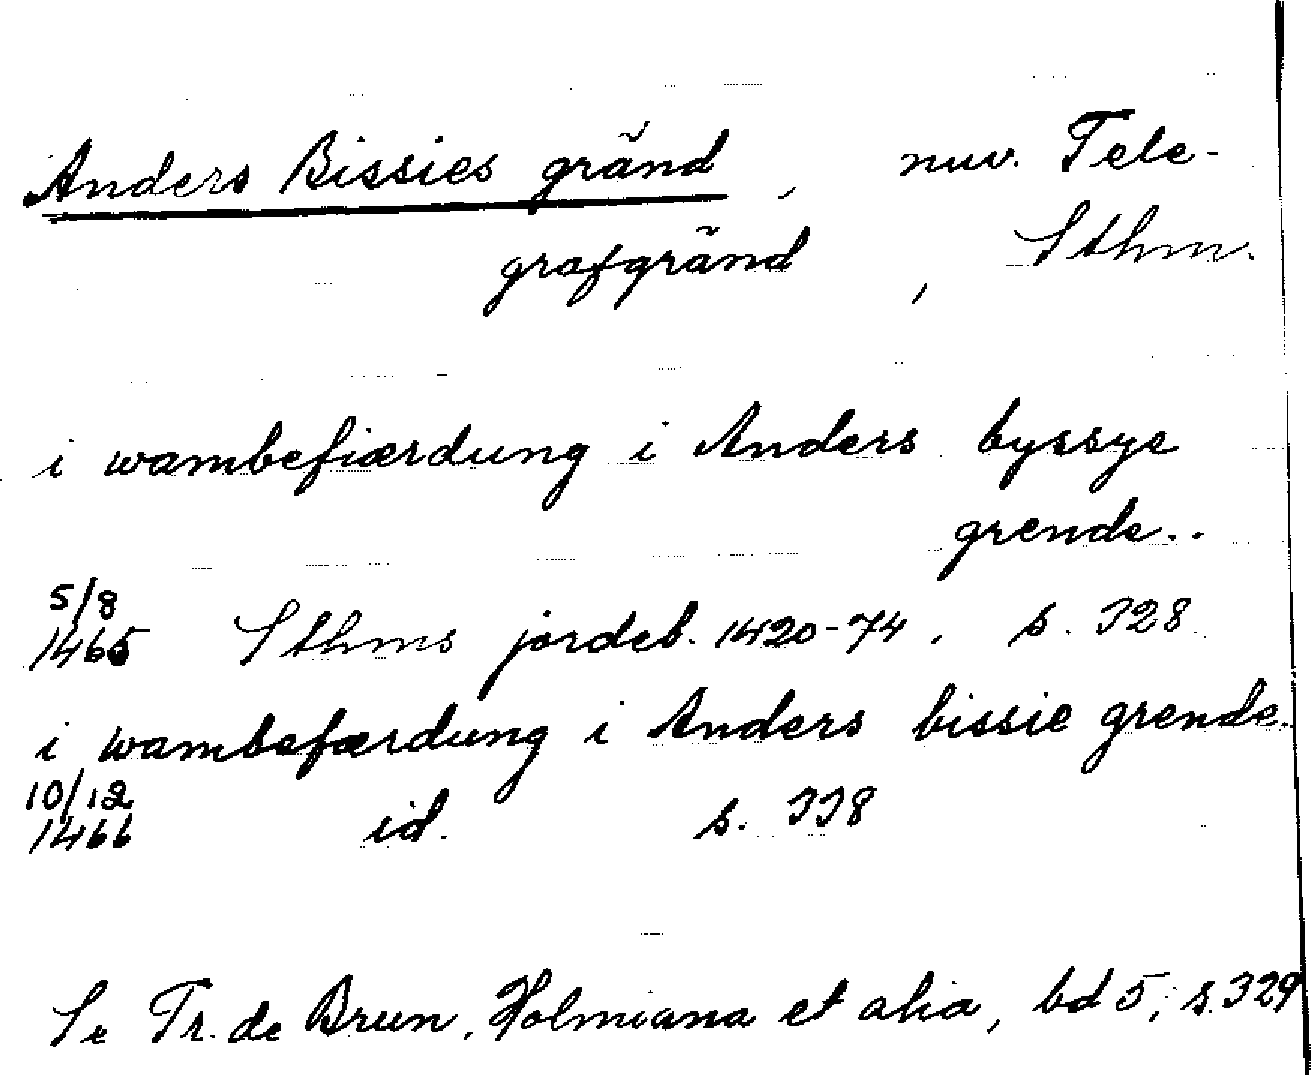 Anders Bissies gränd, nuv. Tele-
grafgränd, Sthm.
i wambefiærdung i Anders byssys
grende..
5/8
1465 Sthms jordeb. 1420-74, s. 328
i wambefærdung i Anders bissie grende.
10/12
1466 id. s. 338
Se Fr. de Brun, Holmiana et alia, bd 5, s. 329